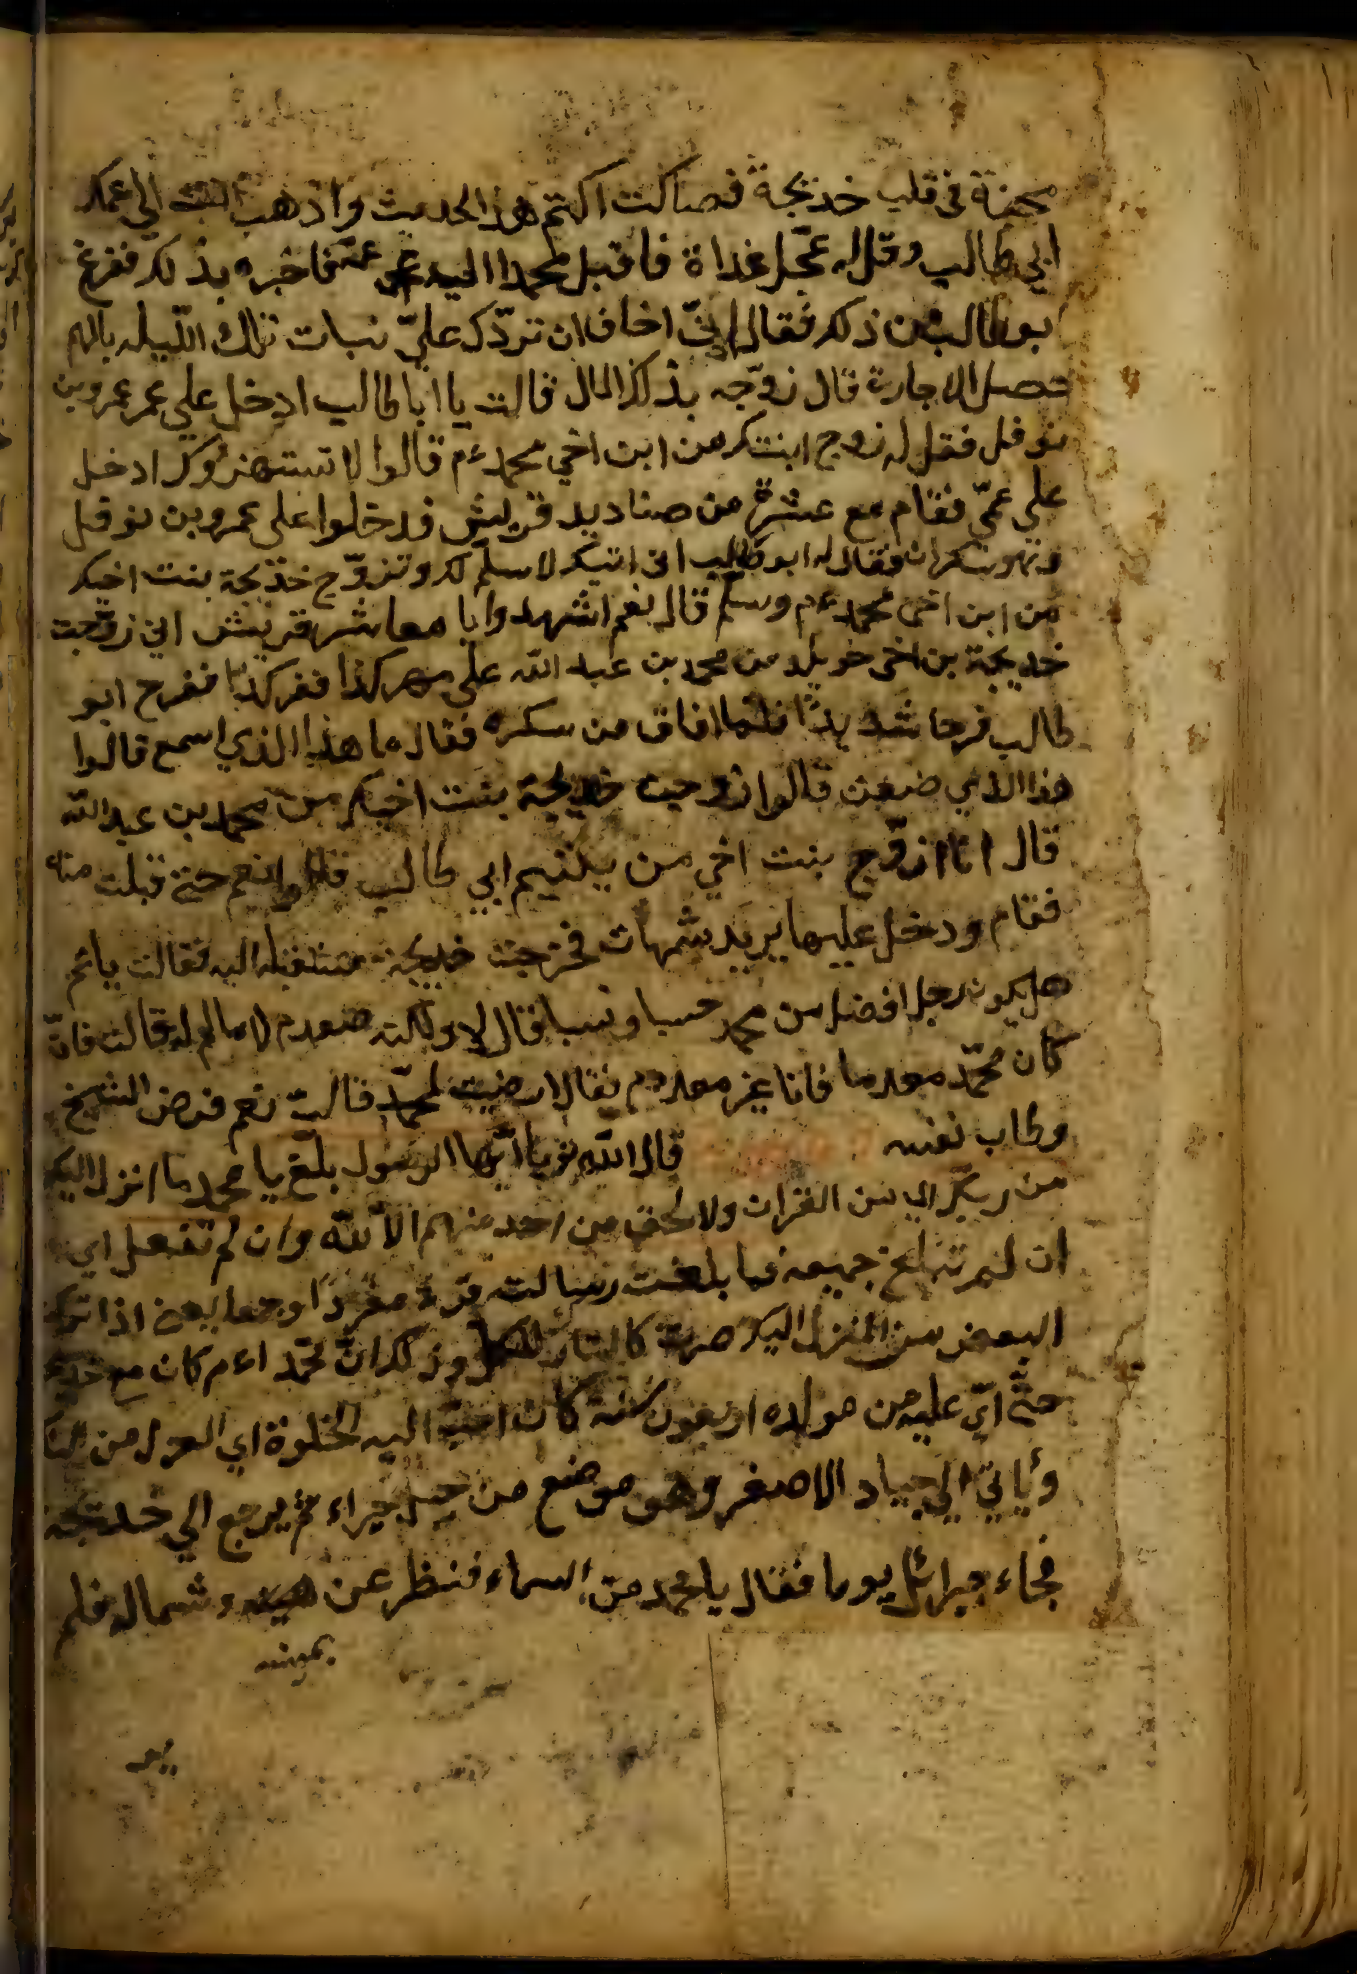 محبة في قلب خديجة فصالت اكتم هذا الحديث واذهب انت الى عمك
ابي طالب وقل له عجل غداة فاقبل محمدا اليه عمه فاخبره بذلك ففزع
بو طالب من ذلك فقال اني اخاف ان تردك علي نبات تلك الليله بالهم
حصل الاجارة قال زوجه بذلك المال قالت يا ابا طالب ادخل علي عمر عمرو بن
نوفل فقل له زوج ابنتك من ابن اخي محمد ءم قالوا لا تستهزؤك ادخل
علي عمي فقام مع عشرة من صناديد قريش فدخلوا على عمرو بن نوفل
وهو سكران فقال له ابو طالب اني اتيك لاسلم لك وتزوج خديجة بنت اخيك
من ابن اخي محمد ءم وسلم قال نعم اشهدوا يا معاشر قريش اني زوجت
خديجة بن اخي خويلد من محمد بن عبد الله على مهر كذا ففركذا ففرح ابو
طالب فرحا شديدا فلما افاق من سكره فقال ما هذا الذي اسمع قالوا
هذا الذي صنعت قالوا زوجت خديجة بنت اخيك من محمد بن عبد الله
قال انا ازوج بنت اخي من يتيم ابي طالب قالوا نعم حتى قبلت منه
فقام ودخل عليها يريد شمات فخرجت خديجة مستقبله اليه فقالت ياعم
هل يكون رجل افضل من محمد حسبا ونسبا قال لا ولكنه معدم لا مال له قالت فان
كان محمد معدما فانا غير معدم فقال ارضيت لمحمد قالت نعم فرض الشيخ
وطاب نفسه قال الله تع يا ايها الرسول بلغ يا محمد ما انزل اليك
من ربك اي من القران ولا تخف من احد منهم الا الله وان لم تفعل اي
ان لم تبلغ جميعه فما بلغت رسالته قرء مفردا وجمعا يعني اذا تركت
البعض من المنزل اليك صرت كالتارك للكل وذكر ان محمدا ءم كان مع خديجة
حتى اتى عليه من مولده اربعون سنة كان احب اليه الخلوة اي العزل من الناس
وياتي الي جياد الاصغر وهو موضع من جبل حراء ثم يرجع الي خديجة
فجاء جبرائل يوما فقال يا محمد من السماء فنظر عن يمينه وشماله فلم
يمينه